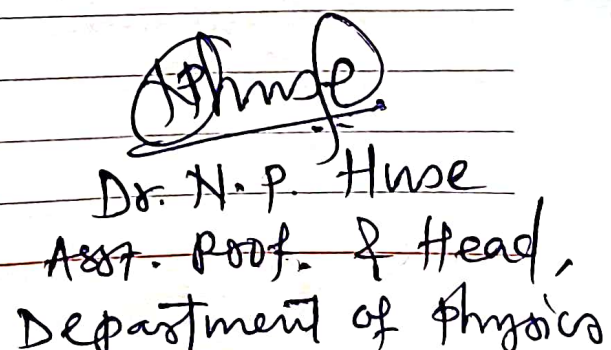 NPHuse
Dr. N. P. Huse
Asst. Prof. & Head,
Department of Physics